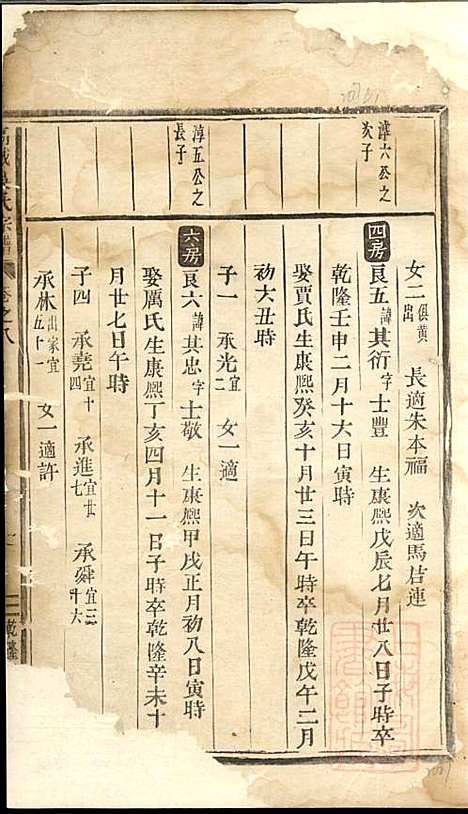 淳六公之
次子
淳五公之
長子
女二俱黃出 長適朱本福 次適馬君連
四房 良五諱其衍字士豐 生康熙戊辰七月廿八日子時卒
乾隆壬申二月十六日寅時
娶賈氏生康熙癸亥十月廿三日午時卒乾隆戊午二月
初六丑時
子一 承光宜二 女一適
六房 良六諱其忠字士敬 生康熙甲戌正月初八日寅時
娶厲氏生康熙丁亥四月十一日子時卒乾隆辛未十
月廿七日午時
子四 承堯宜十四 承進宜廿七 承舜宜三十六
承林出家宜五十一 女一適許
氏宗譜 卷之八
乾隆